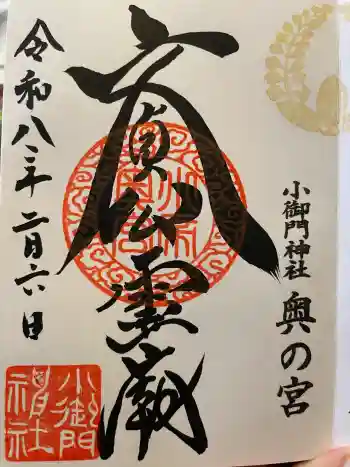 小御門神社 奥の宮
文貞公霊
令和八年二月六日
小御門
神社